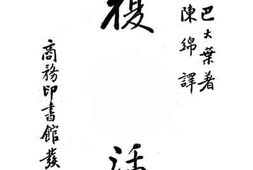 巴大葉著
陳綿譯
復活
商務印書館發